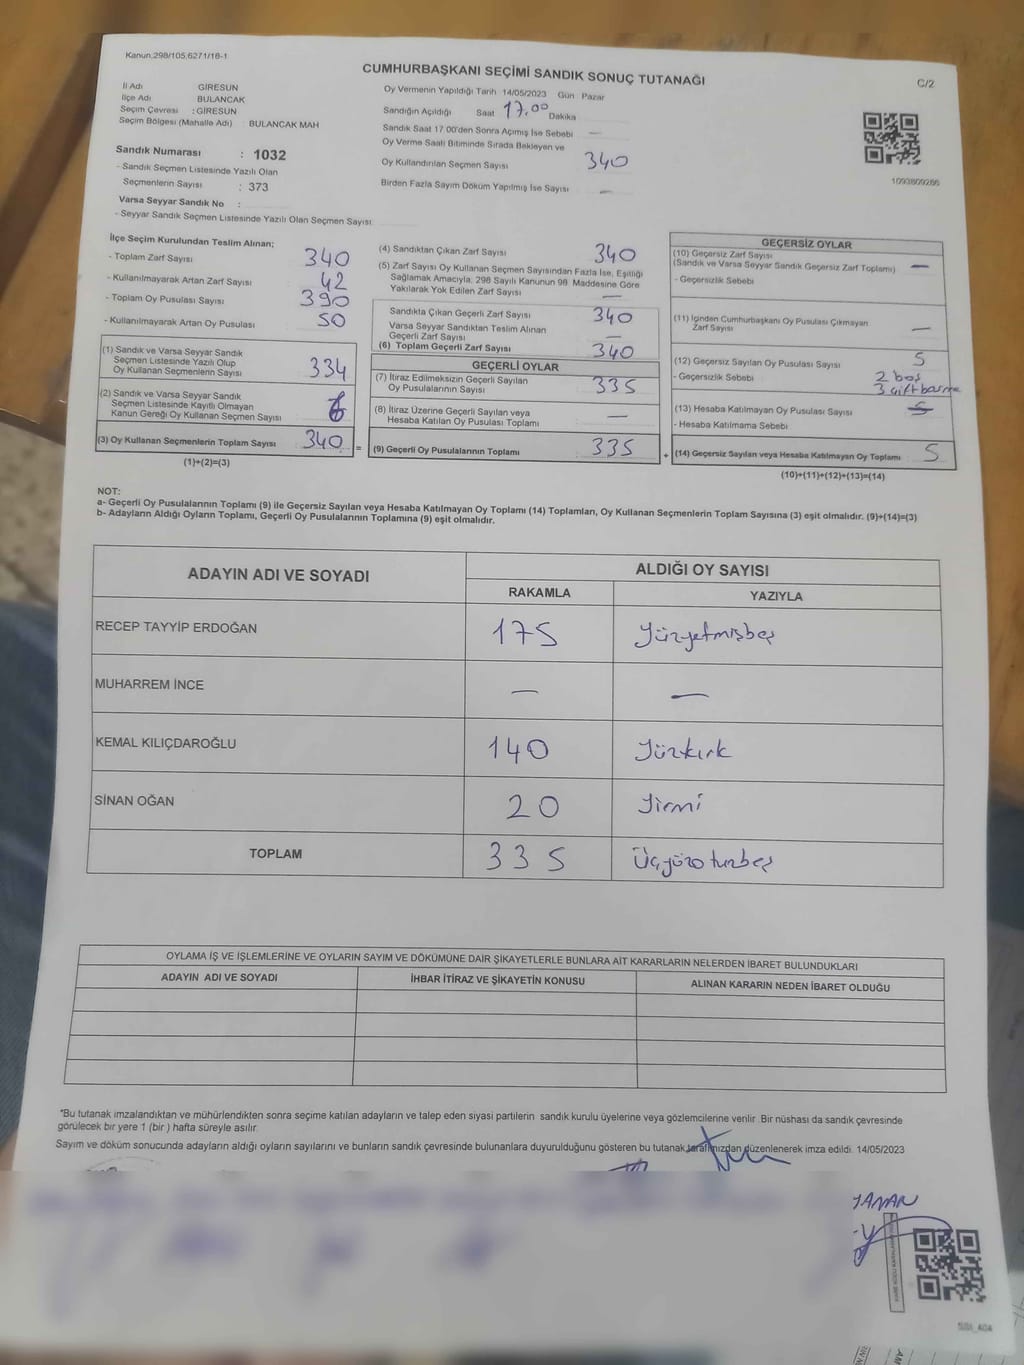 Kanun:298/105;6271/16-1
CUMHURBAŞKANI SEÇİMİ SANDIK SONUÇ TUTANAĞI
C/2
İl Adı GİRESUN
İlçe Adı BULANCAK
Seçim Çevresi : GİRESUN
Seçim Bölgesi (Mahalle Adı) : BULANCAK MAH
Oy Vermenin Yapıldığı Tarih 14/05/2023 Gün Pazar
Sandığın Açıldığı Saat 17.00 Dakika
Sandık Saat 17:00'den Sonra Açımış İse Sebebi —
Oy Verme Saati Bitiminde Sırada Bekleyen ve
Oy Kullandırılan Seçmen Sayısı 340
Birden Fazla Sayım Döküm Yapılmış İse Sayısı —
1093809286
Sandık Numarası : 1032
- Sandık Seçmen Listesinde Yazılı Olan
Seçmenlerin Sayısı : 373
Varsa Seyyar Sandık No :
- Seyyar Sandık Seçmen Listesinde Yazılı Olan Seçmen Sayısı:
İlçe Seçim Kurulundan Teslim Alınan;
- Toplam Zarf Sayısı 340
- Kullanılmayarak Artan Zarf Sayısı 42
- Toplam Oy Pusulası Sayısı 390
- Kullanılmayarak Artan Oy Pusulası 50
(1) Sandık ve Varsa Seyyar Sandık
Seçmen Listesinde Yazılı Olup
Oy Kullanan Seçmenlerin Sayısı 334
(2) Sandık ve Varsa Seyyar Sandık
Seçmen Listesinde Kayıtlı Olmayan
Kanun Gereği Oy Kullanan Seçmen Sayısı 6
(3) Oy Kullanan Seçmenlerin Toplam Sayısı 340
(1)+(2)=(3)
=
(4) Sandıktan Çıkan Zarf Sayısı 340
(5) Zarf Sayısı Oy Kullanan Seçmen Sayısından Fazla İse, Eşitliği
Sağlamak Amacıyla; 298 Sayılı Kanunun 98. Maddesine Göre
Yakılarak Yok Edilen Zarf Sayısı —
Sandıkta Çıkan Geçerli Zarf Sayısı 340
Varsa Seyyar Sandıktan Teslim Alınan
Geçerli Zarf Sayısı —
(6) Toplam Geçerli Zarf Sayısı 340
GEÇERLİ OYLAR
(7) İtiraz Edilmeksizin Geçerli Sayılan
Oy Pusulalarının Sayısı 335
(8) İtiraz Üzerine Geçerli Sayılan veya
Hesaba Katılan Oy Pusulası Toplamı —
(9) Geçerli Oy Pusulalarının Toplamı 335
+
GEÇERSİZ OYLAR
(10) Geçersiz Zarf Sayısı
(Sandık ve Varsa Seyyar Sandık Geçersiz Zarf Toplamı) —
- Geçersizlik Sebebi
(11) İçinden Cumhurbaşkanı Oy Pusulası Çıkmayan
Zarf Sayısı —
(12) Geçersiz Sayılan Oy Pusulası Sayısı 5
- Geçersizlik Sebebi 2 boş
3 çift basma
(13) Hesaba Katılmayan Oy Pusulası Sayısı 5
- Hesaba Katılmama Sebebi
(14) Geçersiz Sayılan veya Hesaba Katılmayan Oy Toplamı 5
(10)+(11)+(12)+(13)=(14)
NOT:
a- Geçerli Oy Pusulalarının Toplamı (9) ile Geçersiz Sayılan veya Hesaba Katılmayan Oy Toplamı (14) Toplamları, Oy Kullanan Seçmenlerin Toplam Sayısına (3) eşit olmalıdır. (9)+(14)=(3)
b- Adayların Aldığı Oyların Toplamı, Geçerli Oy Pusulalarının Toplamına (9) eşit olmalıdır.
ADAYIN ADI VE SOYADI
ALDIĞI OY SAYISI
RAKAMLA YAZIYLA
RECEP TAYYİP ERDOĞAN 175 Yüzyetmişbeş
MUHARREM İNCE — —
KEMAL KILIÇDAROĞLU 140 Yüzkırk
SİNAN OĞAN 20 Yirmi
TOPLAM 335 Üçyüzotuzbeş
OYLAMA İŞ VE İŞLEMLERİNE VE OYLARIN SAYIM VE DÖKÜMÜNE DAİR ŞİKAYETLERLE BUNLARA AİT KARARLARIN NELERDEN İBARET BULUNDUKLARI
ADAYIN ADI VE SOYADI İHBAR İTİRAZ VE ŞİKAYETİN KONUSU ALINAN KARARIN NEDEN İBARET OLDUĞU
*Bu tutanak imzalandıktan ve mühürlendikten sonra seçime katılan adayların ve talep eden siyasi partilerin sandık kurulu üyelerine veya gözlemcilerine verilir. Bir nüshası da sandık çevresinde
görülecek bir yere 1 (bir ) hafta süreyle asılır.
Sayım ve döküm sonucunda adayların aldığı oyların sayılarını ve bunların sandık çevresinde bulunanlara duyurulduğunu gösteren bu tutanak tarafımızdan düzenlenerek imza edildi. 14/05/2023
YAMAN